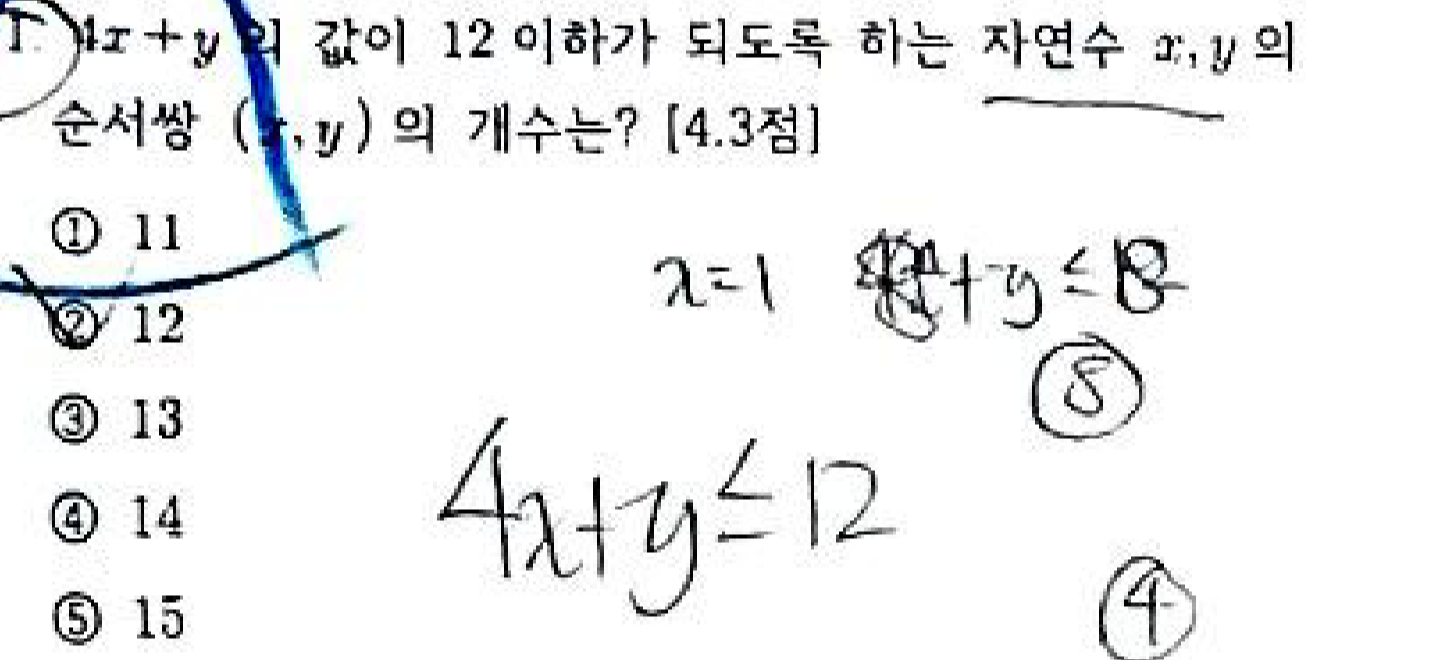 4x+y의 값이 12 이하가 되도록 하는 자연수 x, y의
순서쌍 (x, y)의 개수는? [4.3점]
① 11
② 12
③ 13
④ 14
⑤ 15
x=1 +y≤8
⑧
4x+y≤12
④